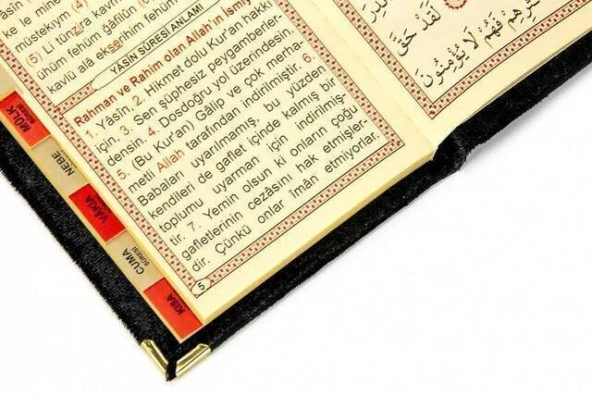 kavlü alâ ekserihim fehüm
YÂSÎN SÛRESİ ANLAMI
Rahman ve Rahim olan Allah'ın
1. Yâsîn. 2. Hikmet dolu Kur'an hakkı
için, 3. Sen şüphesiz peygamberler-
densin. 4. Dosdoğru yol üzerindesin.
5. (Bu Kur'an) Gâlip ve çok merha-
metli Allah tarafından indirilmiştir. 6.
Babaları uyarılmamış, bu yüzden
kendileri de gaflet içinde kalmış bir
toplumu uyarman için indirilmiş-
tir. 7. Yemin olsun ki onların çoğu
gafletlerinin cezâsını hak etmişler-
dir. Çünkü onlar îmân etmiyorlar.
5
لَقَدْ حَقَّ
فَهُمْ لَا يُؤْمِنُونَ
MÜLK
NEBE
VÂKIA
CUMA
SÛRESİ
KISA